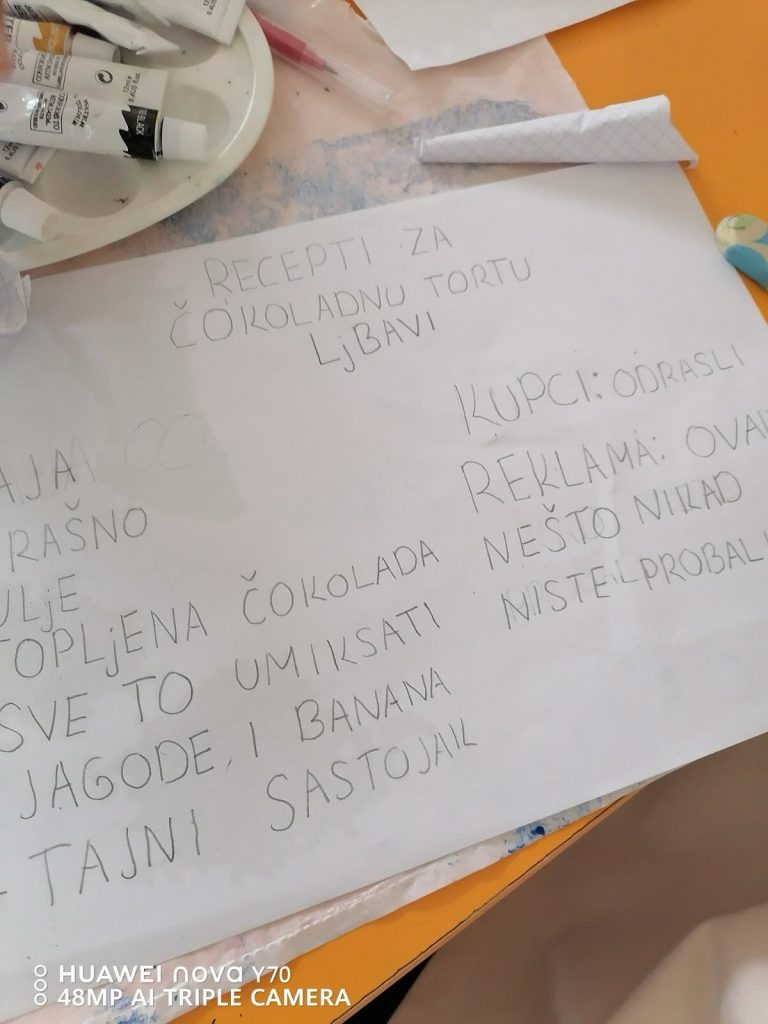 BLACK
RECEPTI ZA
ČOKOLADNU TORTU
LjBAVI
AJA
RAŠNO
ULjE
TOPLjENA ČOKOLADA
SVE TO UMIKSATI
JAGODE, I BANANA
- TAJNI SASTOJAK
KUPCI: ODRASLI
REKLAMA: OVAK
NEŠTO NIKAD
NISTE PROBALI
HUAWEI nova Y70
48MP AI TRIPLE CAMERA